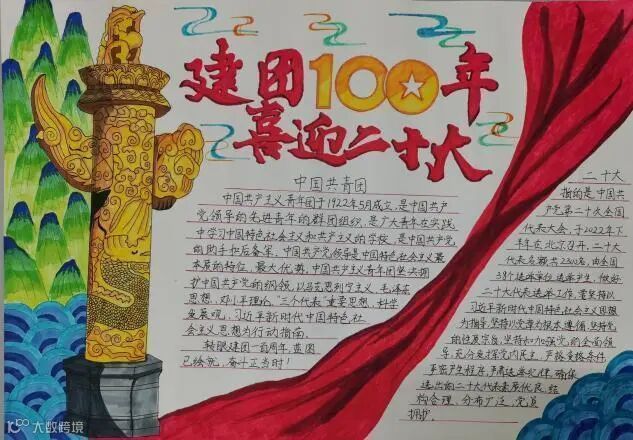 建团100年
喜迎二十大
中国共青团
中国共产主义青年团于1922年5月成立,是中国共产
党领导的先进青年的群团组织,是广大青年在实践
中学习中国特色社会主义和共产主义的学校,是中国共产党
的助手和后备军。中国共产党领导是中国特色社会主义最
本质的特征,最大优势,中国共产主义青年团坚决拥
护中国共产党的纲领,以马克思列宁主义,毛泽东
思想,邓小平理论,“三个代表”重要思想,科学
发展观,习近平新时代中国特色社
会主义思想为行动指南。
转眼建团一百周年,蓝图
已绘就,奋斗正当时!
二十大
指的是中国共
产党第二十次全国
代表大会,于2022年下
半年在北京召开,二十大
代表名额共2300名,由全国
38个选举单位选举产生,做好
二十大代表选举工作,要坚持以
习近平新时代中国特色社会主义思想
为指导,坚持以党章为根本遵循,坚持党
的性质宗旨,坚持和加强党的全面领
导,充分发扬党内民主,严格资格条件,
严密产生程序,严肃选举纪律,确保
选出的二十大代表素质优良,结
构合理,分布广泛,党员
拥护。
大数跨境